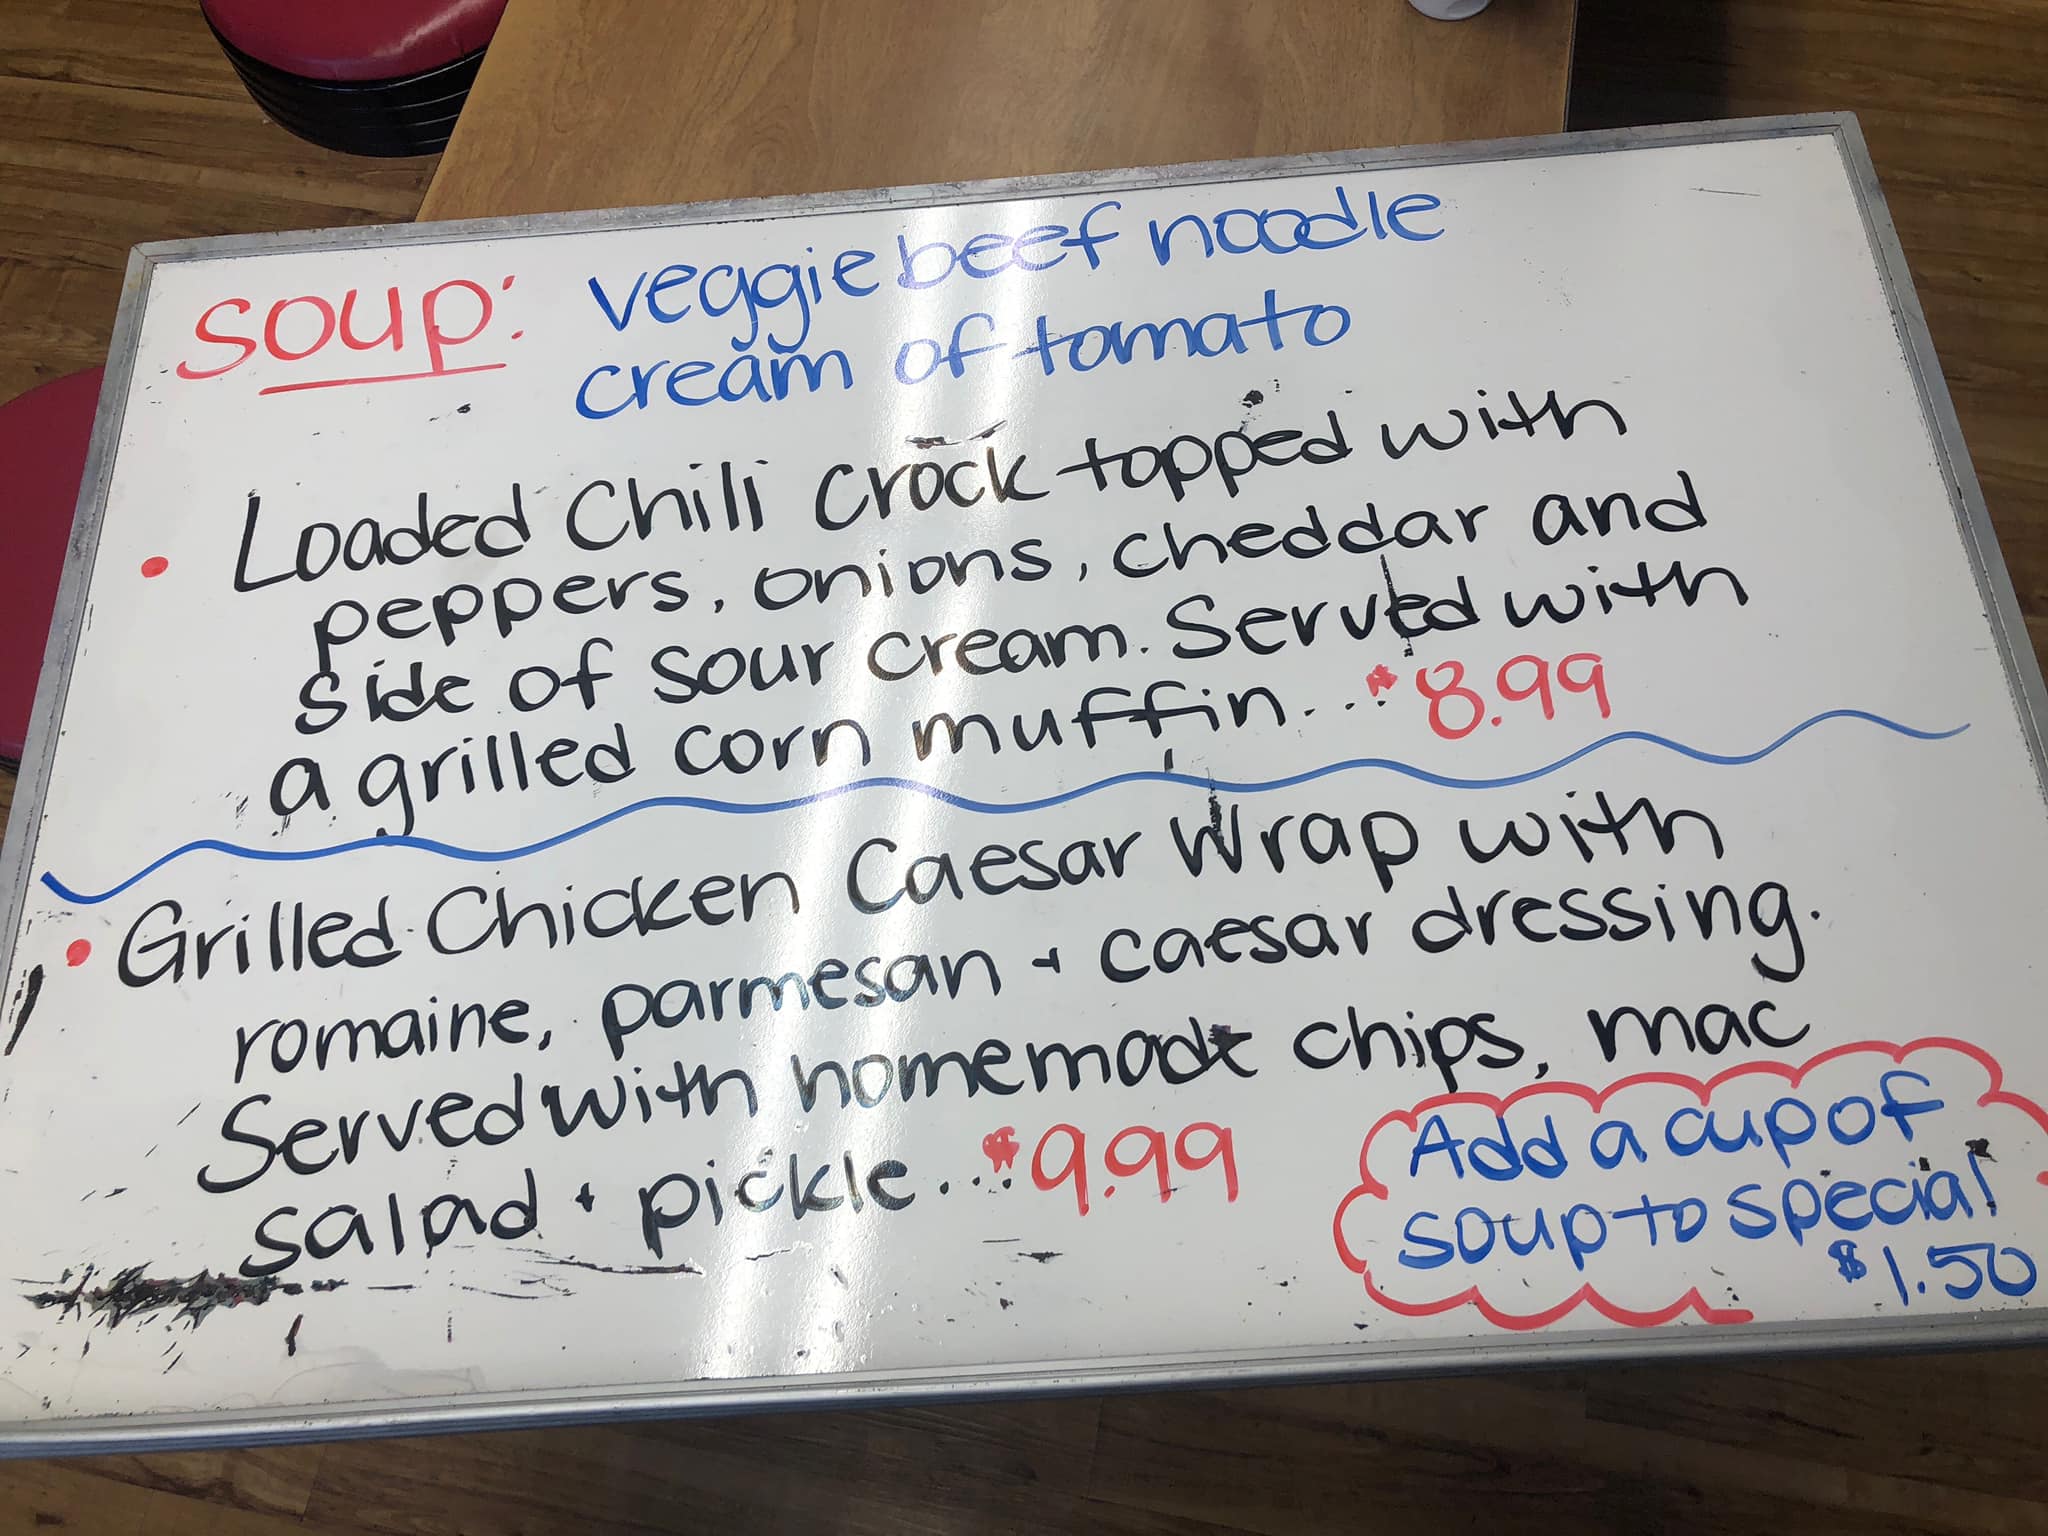 Soup: veggie beef noodle
cream of tomato
• Loaded Chili Crock topped with
peppers, onions, cheddar and
side of sour cream. Served with
a grilled corn muffin...$8.99
• Grilled Chicken Caesar Wrap with
romaine, parmesan + caesar dressing.
Served with homemade chips, mac
salad + pickle...$9.99
Add a cup of
soup to special
$1.50